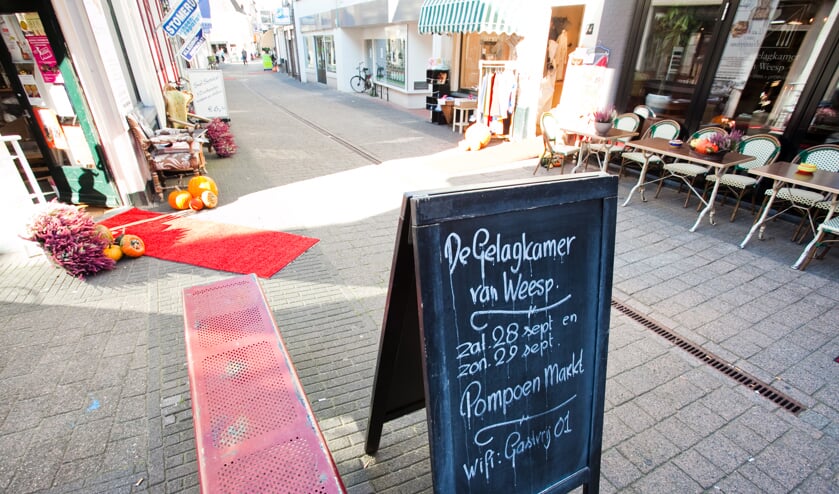 STOKER
De Gelagkamer
van Weesp.
zat. 28 sept en
zon. 29 sept.
Pompoen Markt
wifi: Gastvrij 01